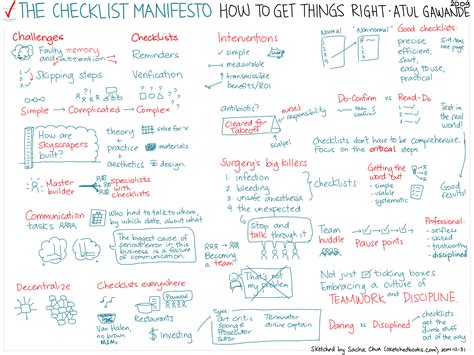 THE CHECKLIST MANIFESTO HOW TO GET THINGS RIGHT · ATUL GAWANDE
2009
Challenges
Faulty memory
and attention
Skipping steps
Checklists
Reminders
Verification
Simple → Complicated → Complex
How are
skyscrapers
built?
theory
+
practice
+
aesthetics
solve for x
materials
design
Master
builder
specialists
with
checklists
Communication
tasks
Who had to talk to whom,
by which date, about what
The biggest cause of
serious error in this
business is a failure
of communication.
Decentralize
Checklists everywhere
Van Halen,
no brown
M&Ms
Restaurants
Investing
Interventions
simple
measurable
transmissible
benefits/ROI
antibiotic?
Cleared for
Takeoff
nurses'
responsibility
scalpel
Surgery's big killers
1. infection
2. bleeding
3. unsafe anesthesia
4. the unexpected
checklists
Stop and
talk through it
Becoming
a team
That's not
my problem
Types
art critic
sponge
Prosecutor
Suitor
Terminator
airline captain
Normal
Non-normal
Good checklists:
precise
efficient
short,
easy to use,
practical
5-9 items,
one
page
Do-Confirm vs Read-Do
then
Test in
the real
world!
Checklists don't have to be comprehensive.
Focus on the critical steps
Getting the
word out
- simple
- usable
- systematic
Good
results!
Team
huddle
Pause points
Professional:
- selfless
- skilled
- trustworthy
- disciplined
Not just ticking boxes
Embracing a culture of
TEAMWORK AND DISCIPLINE.
Checklists
get the
dumb stuff
out of
the way
Sketched by Sacha Chua (sketchedbooks.com)